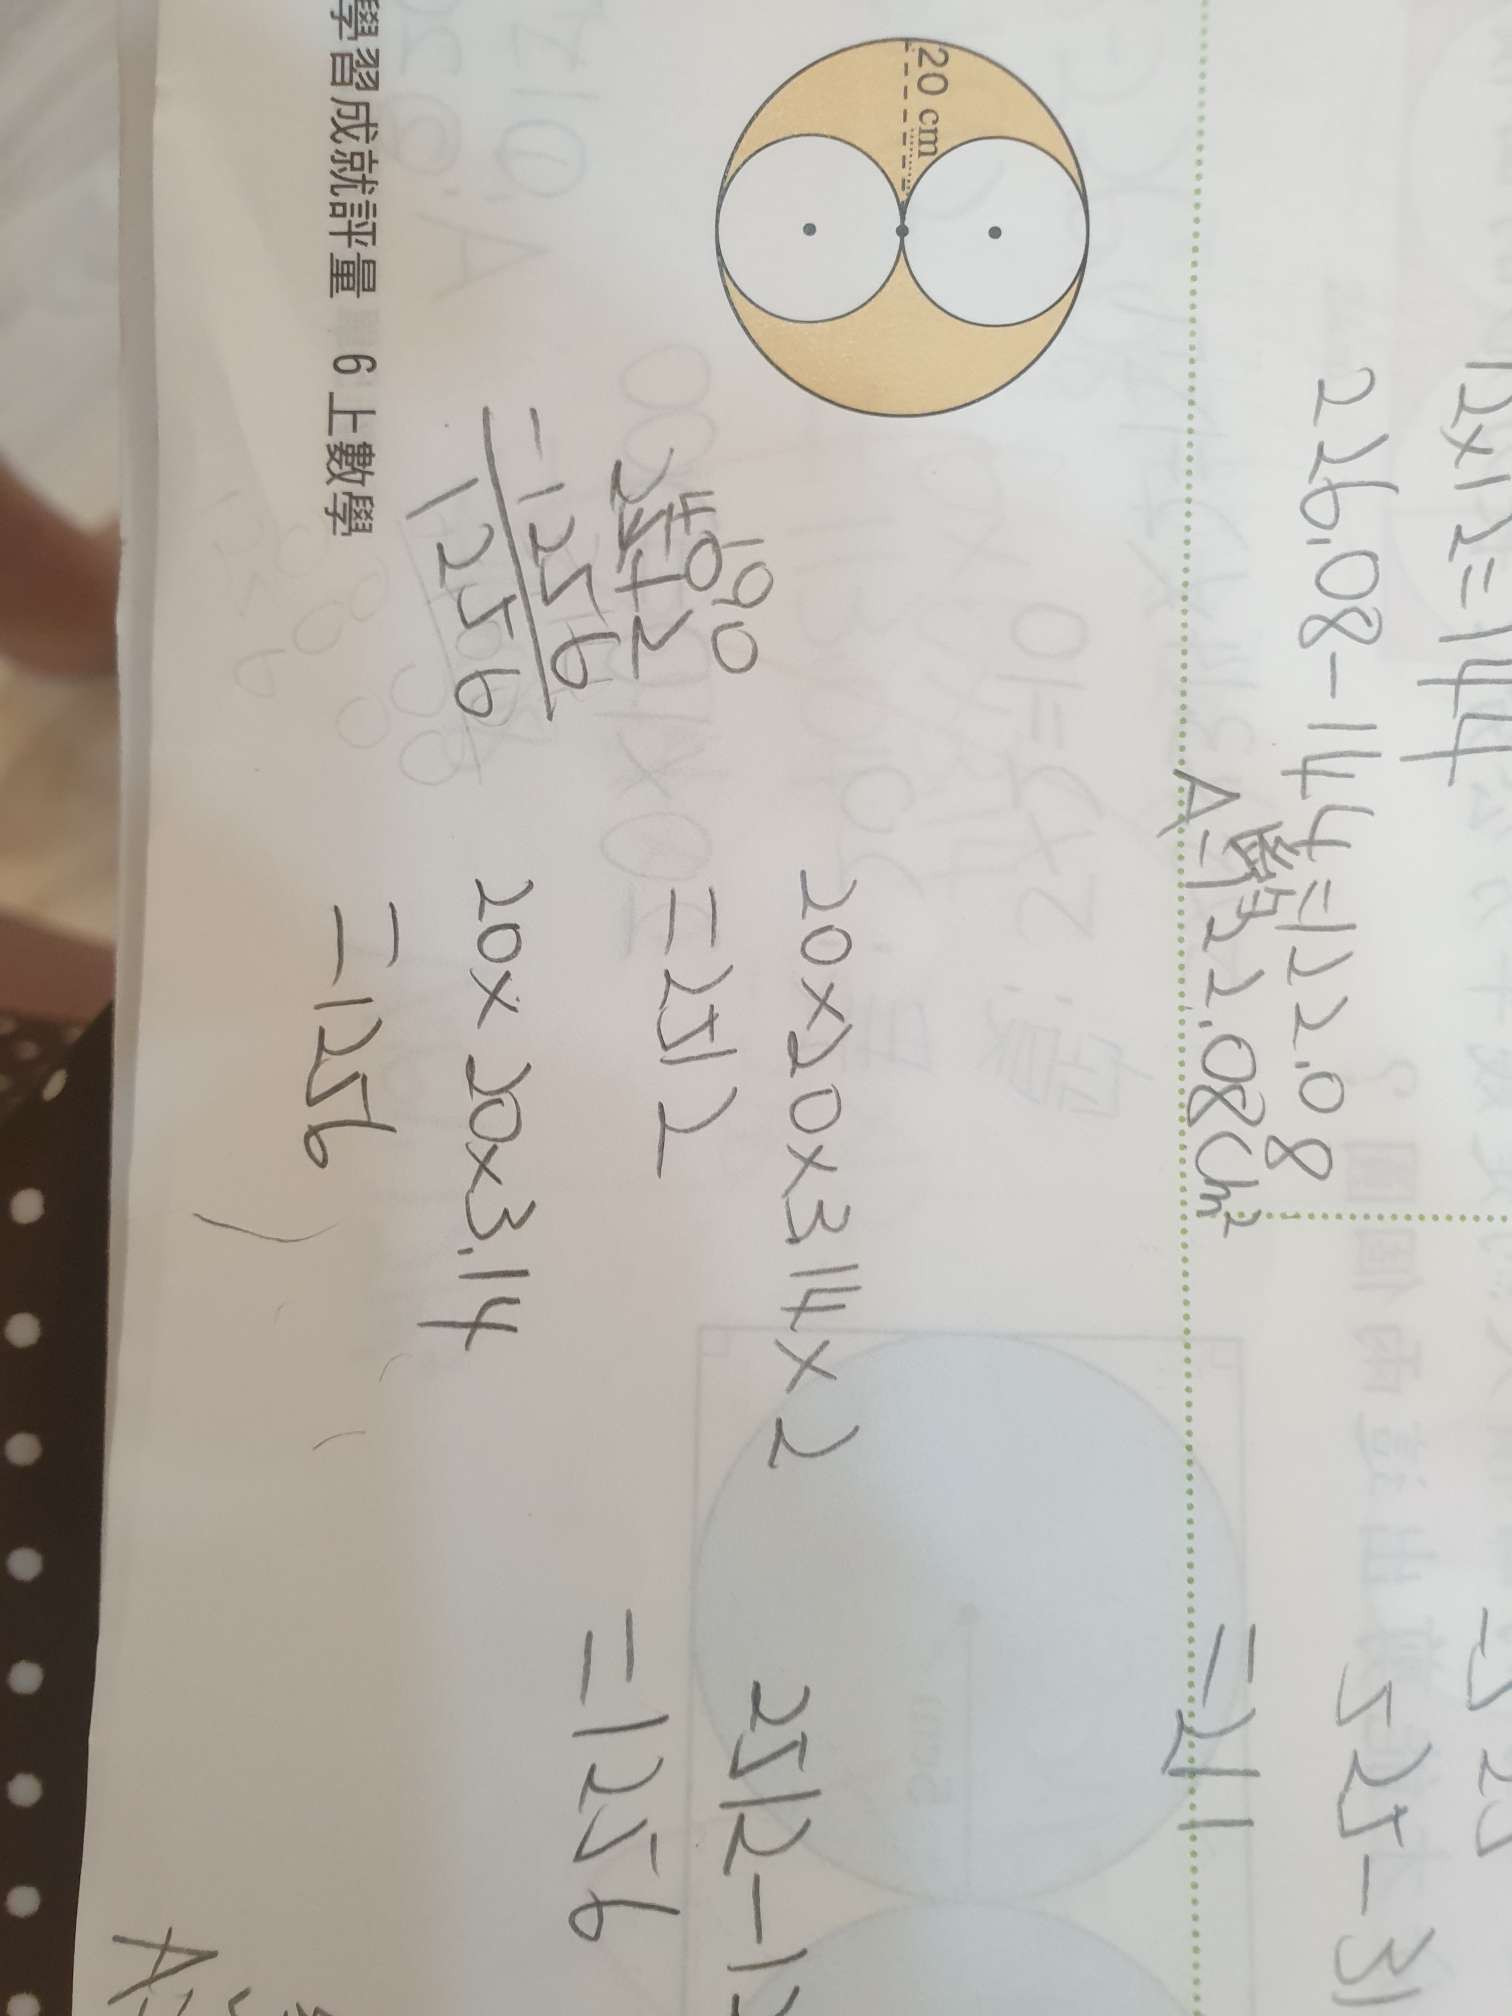 12×12=144
226.08-144=122.08
A=122.08cm²
525-31
=211
20 cm
20×20×3.14×2
=2512
20×20×3.14
=1256
2512
-1256
1256
2512-1
=1256
學習成就評量 6上數學